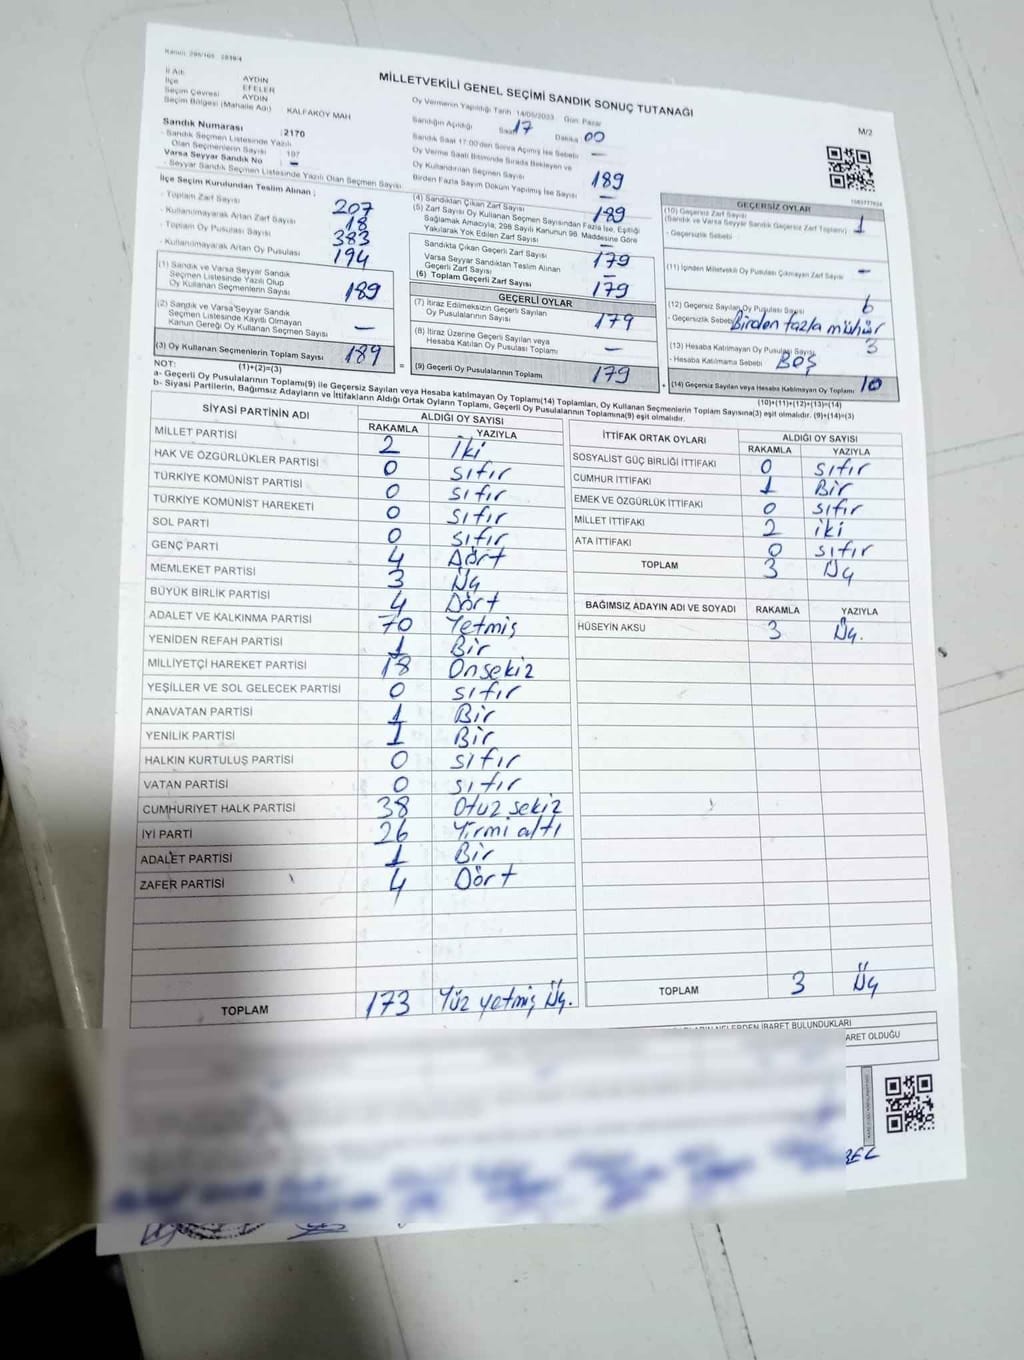 MİLLETVEKİLİ GENEL SEÇİMİ SANDIK SONUÇ TUTANAĞI
M/2
İl Adı AYDIN
İlçe EFELER
Seçim Çevresi AYDIN
Seçim Bölgesi (Mahalle Adı) KALFAKÖY MAH
Sandık Numarası :2170
- Sandık Seçmen Listesinde Yazılı
Olan Seçmenlerin Sayısı 197
Varsa Seyyar Sandık No : -
- Seyyar Sandık Seçmen Listesinde Yazılı Olan Seçmen Sayısı
Oy Vermenin Yapıldığı Tarih: 14/05/2023 Gün: Pazar
Sandığın Açıldığı Saat 17 Dakika 00
Sandık Saat 17:00'den Sonra Açılmış İse Sebebi -
Oy Verme Saati Bitiminde Sırada Bekleyen ve
Oy Kullandırılan Seçmen Sayısı 189
Birden Fazla Sayım Döküm Yapılmış İse Sayısı -
İlçe Seçim Kurulundan Teslim Alınan ;
- Toplam Zarf Sayısı 207
- Kullanılmayarak Artan Zarf Sayısı 18
- Toplam Oy Pusulası Sayısı 383
- Kullanılmayarak Artan Oy Pusulası 194
(1) Sandık ve Varsa Seyyar Sandık
Seçmen Listesinde Yazılı Olup
Oy Kullanan Seçmenlerin Sayısı 189
(2) Sandık ve Varsa Seyyar Sandık
Seçmen Listesinde Kayıtlı Olmayan
Kanun Gereği Oy Kullanan Seçmen Sayısı -
(3) Oy Kullanan Seçmenlerin Toplam Sayısı 189
(1)+(2)=(3)
(4) Sandıktan Çıkan Zarf Sayısı 189
(5) Zarf Sayısı Oy Kullanan Seçmen Sayısından Fazla İse, Eşitliği
Sağlamak Amacıyla; 298 Sayılı Kanunun 98. Maddesine Göre
Yakılarak Yok Edilen Zarf Sayısı -
Sandıkta Çıkan Geçerli Zarf Sayısı 179
Varsa Seyyar Sandıktan Teslim Alınan
Geçerli Zarf Sayısı -
(6) Toplam Geçerli Zarf Sayısı 179
GEÇERLİ OYLAR
(7) İtiraz Edilmeksizin Geçerli Sayılan
Oy Pusulalarının Sayısı 179
(8) İtiraz Üzerine Geçerli Sayılan veya
Hesaba Katılan Oy Pusulası Toplamı -
= (9) Geçerli Oy Pusulalarının Toplamı 179
GEÇERSİZ OYLAR
(10) Geçersiz Zarf Sayısı
(Sandık ve Varsa Seyyar Sandık Geçersiz Zarf Toplamı) 1
- Geçersizlik Sebebi
(11) İçinden Milletvekili Oy Pusulası Çıkmayan Zarf Sayısı -
(12) Geçersiz Sayılan Oy Pusulası Sayısı 6
- Geçersizlik Sebebi Birden fazla mühür
(13) Hesaba Katılmayan Oy Pusulası Sayısı 3
- Hesaba Katılmama Sebebi BOŞ
+ (14) Geçersiz Sayılan veya Hesaba Katılmayan Oy Toplamı 10
(10)+(11)+(12)+(13)=(14)
NOT:
a- Geçerli Oy Pusulalarının Toplamı(9) ile Geçersiz Sayılan veya Hesaba katılmayan Oy Toplamı(14) Toplamları, Oy Kullanan Seçmenlerin Toplam Sayısına(3) eşit olmalıdır. (9)+(14)=(3)
b- Siyasi Partilerin, Bağımsız Adayların ve İttifakların Aldığı Ortak Oyların Toplamı, Geçerli Oy Pusulalarının Toplamına(9) eşit olmalıdır.
SİYASİ PARTİNİN ADI ALDIĞI OY SAYISI
RAKAMLA YAZIYLA
MİLLET PARTİSİ 2 iki
HAK VE ÖZGÜRLÜKLER PARTİSİ 0 sıfır
TÜRKİYE KOMÜNİST PARTİSİ 0 sıfır
TÜRKİYE KOMÜNİST HAREKETİ 0 sıfır
SOL PARTİ 0 sıfır
GENÇ PARTİ 4 Dört
MEMLEKET PARTİSİ 3 Üç
BÜYÜK BİRLİK PARTİSİ 4 Dört
ADALET VE KALKINMA PARTİSİ 70 Yetmiş
YENİDEN REFAH PARTİSİ 1 Bir
MİLLİYETÇİ HAREKET PARTİSİ 18 Onsekiz
YEŞİLLER VE SOL GELECEK PARTİSİ 0 sıfır
ANAVATAN PARTİSİ 1 Bir
YENİLİK PARTİSİ 1 Bir
HALKIN KURTULUŞ PARTİSİ 0 sıfır
VATAN PARTİSİ 0 sıfır
CUMHURİYET HALK PARTİSİ 38 Otuz sekiz
İYİ PARTİ 26 Yirmi altı
ADALET PARTİSİ 1 Bir
ZAFER PARTİSİ 4 Dört
TOPLAM 173 Yüz yetmiş Üç.
İTTİFAK ORTAK OYLARI ALDIĞI OY SAYISI
RAKAMLA YAZIYLA
SOSYALİST GÜÇ BİRLİĞİ İTTİFAKI 0 sıfır
CUMHUR İTTİFAKI 1 Bir
EMEK VE ÖZGÜRLÜK İTTİFAKI 0 sıfır
MİLLET İTTİFAKI 2 iki
ATA İTTİFAKI 0 sıfır
TOPLAM 3 Üç
BAĞIMSIZ ADAYIN ADI VE SOYADI RAKAMLA YAZIYLA
HÜSEYİN AKSU 3 Üç.
TOPLAM 3 Üç
NELERDEN İBARET BULUNDUKLARI
ARET OLDUĞU